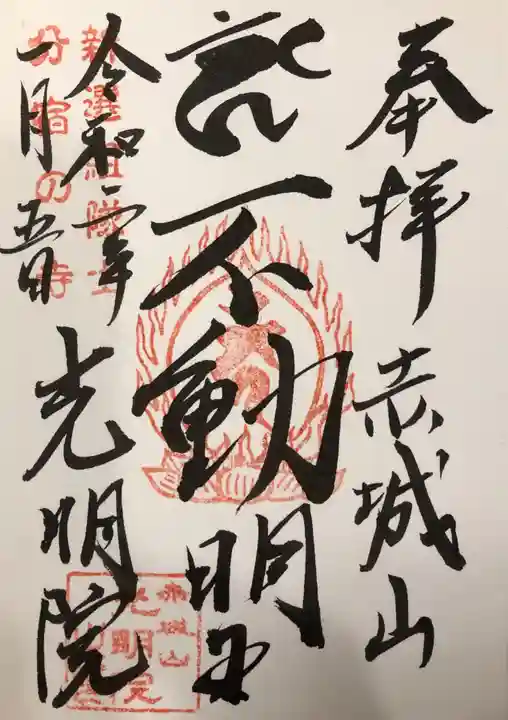 奉拝 赤城山
不動明王
令和二年
一月五日
光明院
新選組隊士
分宿の寺
赤城山
光明院